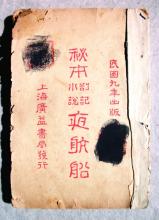 民國九年出版
秘本
劄記
小說
夜航船
上海廣益書局發行